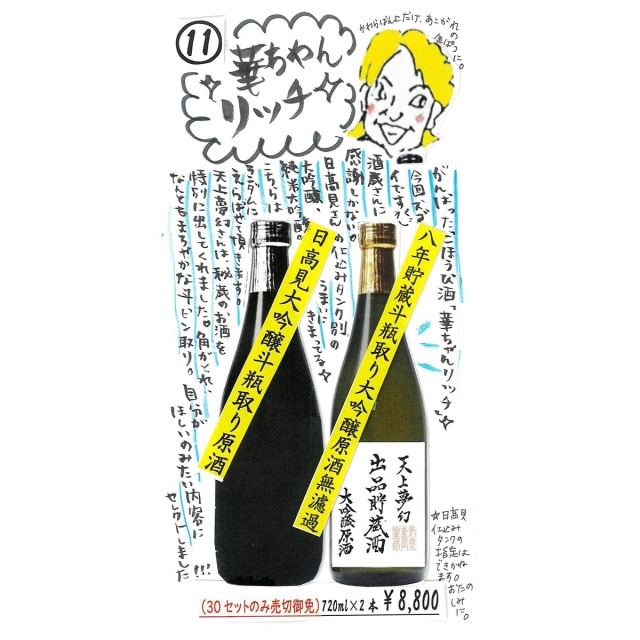 ⑪
華ちゃん
☆リッチ☆
かわらばん上だけ、あこがれ
の
金ぱつに。
がんばった、ごほうび酒「華ちゃんリッチ」☆
今回スゴく
イイですよ
酒蔵さんに
感謝しかない。
日高見さんの仕込みタンク別の
大吟醸、うまいに
純米大吟醸の きまってる☆
こちらは
ランダムに
えらばせて頂きます。
天上夢幻さんは、秘蔵のお酒を
特別に出してくれました。角がとれ、
なんともまろやかな斗ビン取り。自分が
ほしいのみたい内容に
セレクトしました!!!
日高見大吟醸斗瓶取り原酒
八年貯蔵斗瓶取り大吟醸原酒無濾過
天上夢幻
出品貯蔵酒
大吟醸原酒
☆日高見
仕込み
タンクの
指定は
できかね
ます。
おたの
しみ
に。
(30セットのみ売切御免) 720ml×2本 ¥8,800